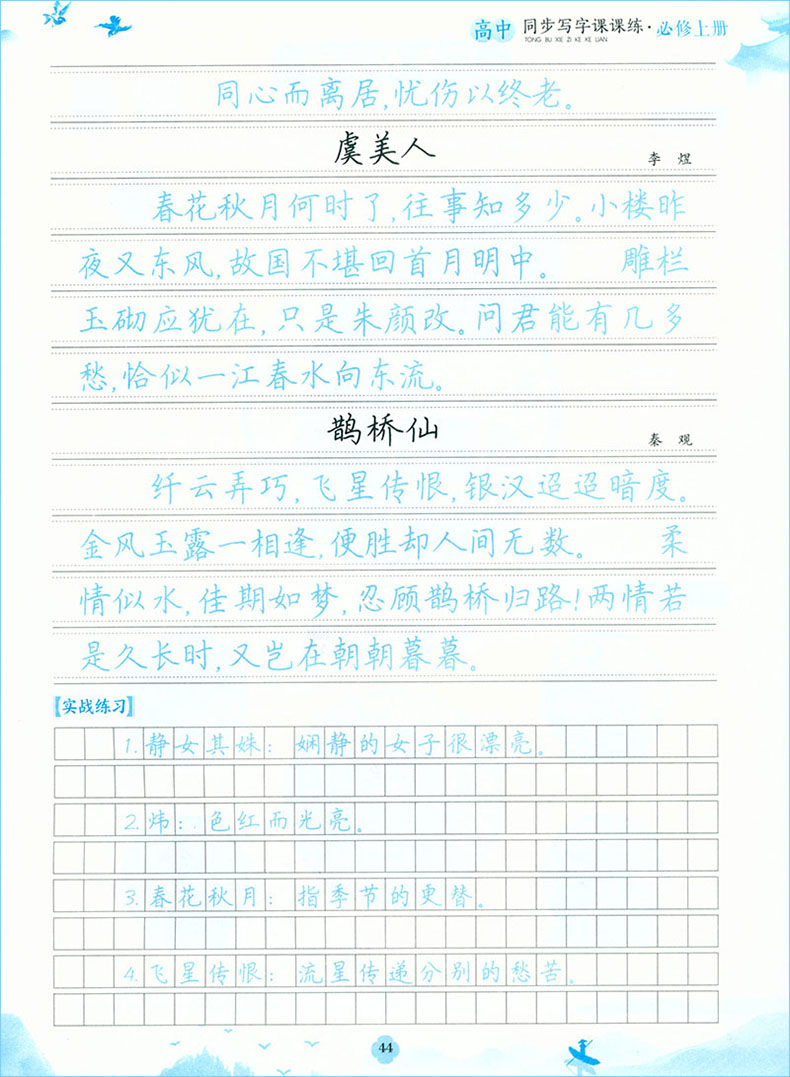 高中 同步写字课课练·必修上册
TONG BU XIE ZI KE KE LIAN
同心而离居,忧伤以终老。
虞美人
李 煜
春花秋月何时了,往事知多少。小楼昨
夜又东风,故国不堪回首月明中。 雕栏
玉砌应犹在,只是朱颜改。问君能有几多
愁,恰似一江春水向东流。
鹊桥仙
秦 观
纤云弄巧,飞星传恨,银汉迢迢暗度。
金风玉露一相逢,便胜却人间无数。 柔
情似水,佳期如梦,忍顾鹊桥归路!两情若
是久长时,又岂在朝朝暮暮。
【实战练习】
1.静女其姝：娴静的女子很漂亮。
2.炜：色红而光亮。
3.春花秋月：指季节的更替。
4.飞星传恨：流星传递分别的愁苦。
44